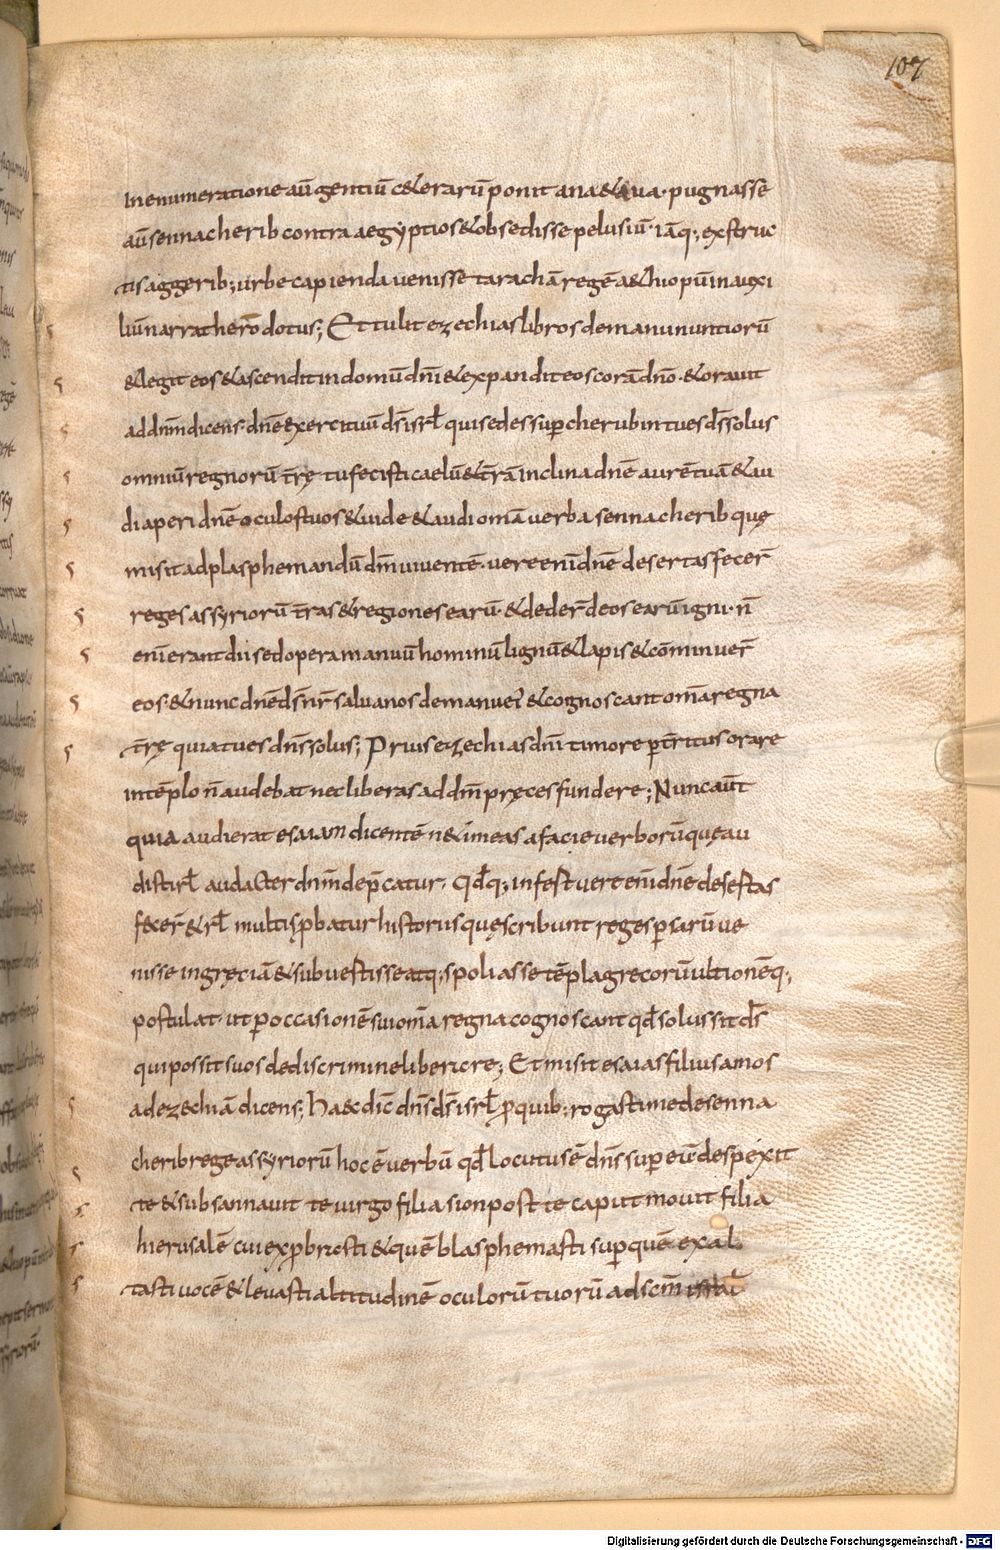 107
In enumeratione aū gentiū c&erarū ponit ana & aua · pugnasse
aū sennacherib contra aegyptios & obsedisse pelusiū · iāq; exstruc
tis aggerib; urbe capienda uenisse taracham regē a&hiopū in auxi
liū narrat herodotus; Et tulit ezechias libros de manu nuntiorū
& legit eos & ascendit in domū dn̄i & expandit eos corā dn̄o · & orauit
ad dn̄m dicens · dn̄e exercituū ds̄ isrl̄ qui sedes sup cherubin tu es ds̄ solus
omniū regnorū t̄rę tu fecisti caelū & t̄rā Inclina dn̄e aurē tuā & au
di aperi dn̄e oculos tuos & uide & audi om̄a uerba sennacherib quę
misit ad plasphemandū dm̄ uiuentē · uere eni dn̄e desertas fecer̄
reges assyriorū t̄ras & regiones earū · & deder̄ deos earū igni · n̄
eni erant dii sed opera manuū hominū lignū & lapis & cōminuer̄
eos · & nunc dn̄e ds̄ nr̄ salua nos de manu ei & cognoscant om̄a regna
t̄rę quia tu es dn̄s solus; Prius ezechias dn̄i timore pt̄ritus orare
in tēplo n̄ audebat nec liberas ad dm̄ pręces fundere; Nunc aūt
quia audierat esaiam dicentē n̄ &imeas a facie uerborū quę au
disti rl̄ audacter dn̄m dep̄catur · qd̄q; infest uere eni dn̄e desertas
fecer̄ & rl̄ multis pbatur historiis quę scribunt reges psarū ue
nisse in gręciā & subuertisse atq; spoliasse tēpla grecorū ultionēq;
postulat · ut p occasionē sui om̄a regna cognoscant qd̄ solus sit ds̄
qui possit suos de discrimine libericre; Et misit esaias filius amos
ad ezechiā dicens; Haec dic̄ dn̄s ds̄ isrl̄ p quib; rogasti me de senna
cherib rege assyriorū hoc ē uerbū qd̄ locutus ē dn̄s super eū despexit
te & subsannauit te uirgo filia sion post te caput mouit filia
hierusalē cui exprobrasti & quē blasphemasti sup quē exal
tasti uocē & leuasti altitudinē oculorū tuorū ad scm̄
Digitalisierung gefördert durch die Deutsche Forschungsgemeinschaft - DFG